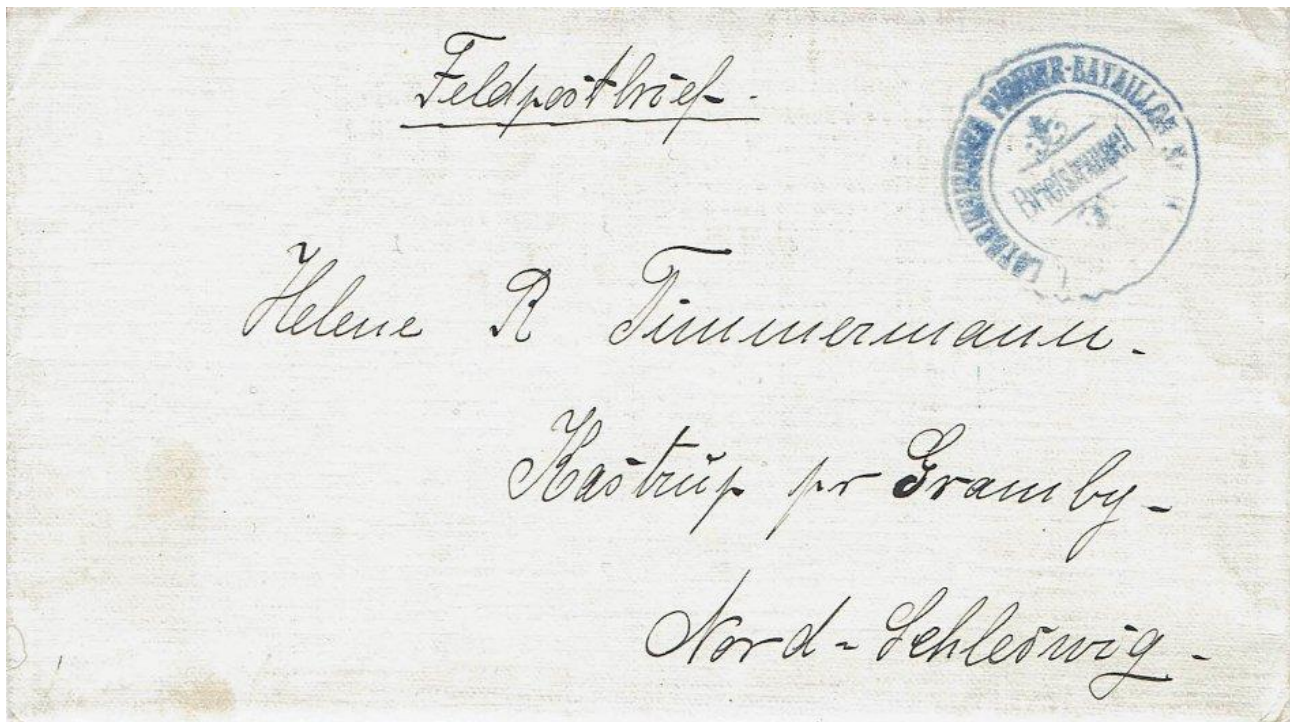 Feldpostbrief.
I. LOTHRINGISCHES PIONIER-BATAILLON No
Briefstempel
Helene R Timmermann.
Kastrup pr Gramby-
Nord-Schleswig-